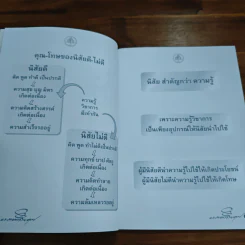 คุณ-โทษของนิสัยดี-ไม่ดี
นิสัยดี
คิด พูด ทำดี เป็นปกติ
ความสุข บุญ มิตร
เกิดต่อเนื่อง
ความคิดสร้างสรรค์
เกิดต่อเนื่อง
ความสำเร็จรออยู่
ความรู้
วิชาการ
นิสัยไม่ดี
คิด พูด ทำไม่ดีเป็นปกติ
ความทุกข์ บาป ศัตรู
เกิดต่อเนื่อง
เกิดต่อเนื่อง
ความล้มเหลวรออยู่
นิสัย สำคัญกว่า ความรู้
เพราะความรู้วิชาการ
เป็นเพียงอุปกรณ์ให้นิสัยนำไปใช้
ผู้มีนิสัยดีนำความรู้ไปใช้ให้เกิดประโยชน์
ผู้มีนิสัยไม่ดีนำความรู้ไปใช้ให้เกิดโทษ